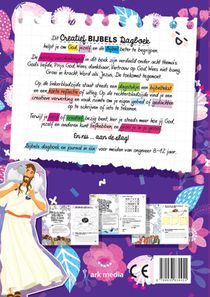 Dit Creatief BIJBELS Dagboek
helpt je om God, jezelf en de Bijbel beter te begrijpen.
in dit boek zijn verdeeld onder acht thema's:
Gods liefde, Prijs God, Wees dankbaar, Vertrouw op God, Wees niet bang,
Groei in kracht, Word als Jezus, De toekomst tegemoet.
Op de linkerbladzijde staat steeds een dagtekstje en bijbeltekst
en een korte reflectie of uitleg. Op de rechterbladzijde vind je een
creatieve verwerking en vaak ruimte om je eigen gebed of gedachten
op te schrijven of iets te tekenen.
Terwijl je leest of creatief bezig bent, leer je steeds meer hoe jij God,
jezelf en anderen kunt liefhebben, en
En nu ... aan de slag!
Bijbels dagboek en journal in één voor meiden van ongeveer 8-12 jaar.
ark media
CE